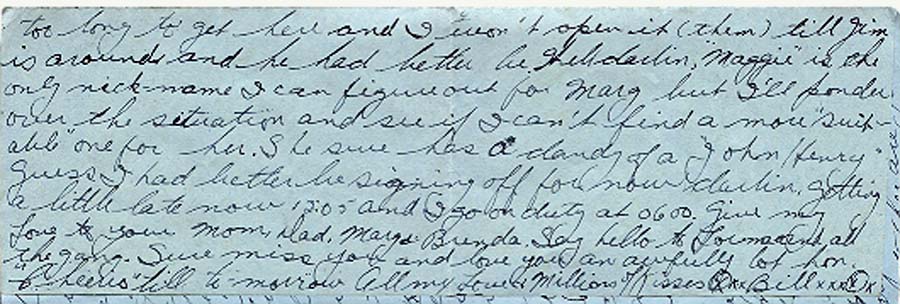 too long to get here and I won't open it (them) till Jim
is around and he had better be. Well darlin, "Maggie" is the
only nick-name I can figure out for Marg but I'll ponder
over the situation and see if I can't find a more "suit-
able" one for her. She sure has a dandy of a "John Henry"
Guess I had better be signing off for now darlin, getting
a little late now 1205 and I go on duty at 0600. Give my
Love to your Mom, Dad, Marg & Brenda. Say hello to and all
the gang. Sure miss you and love you an awfully lot hon.
"Cheerio" till to-morrow All my Love & Millions of Kisses xxx Bill xxx x